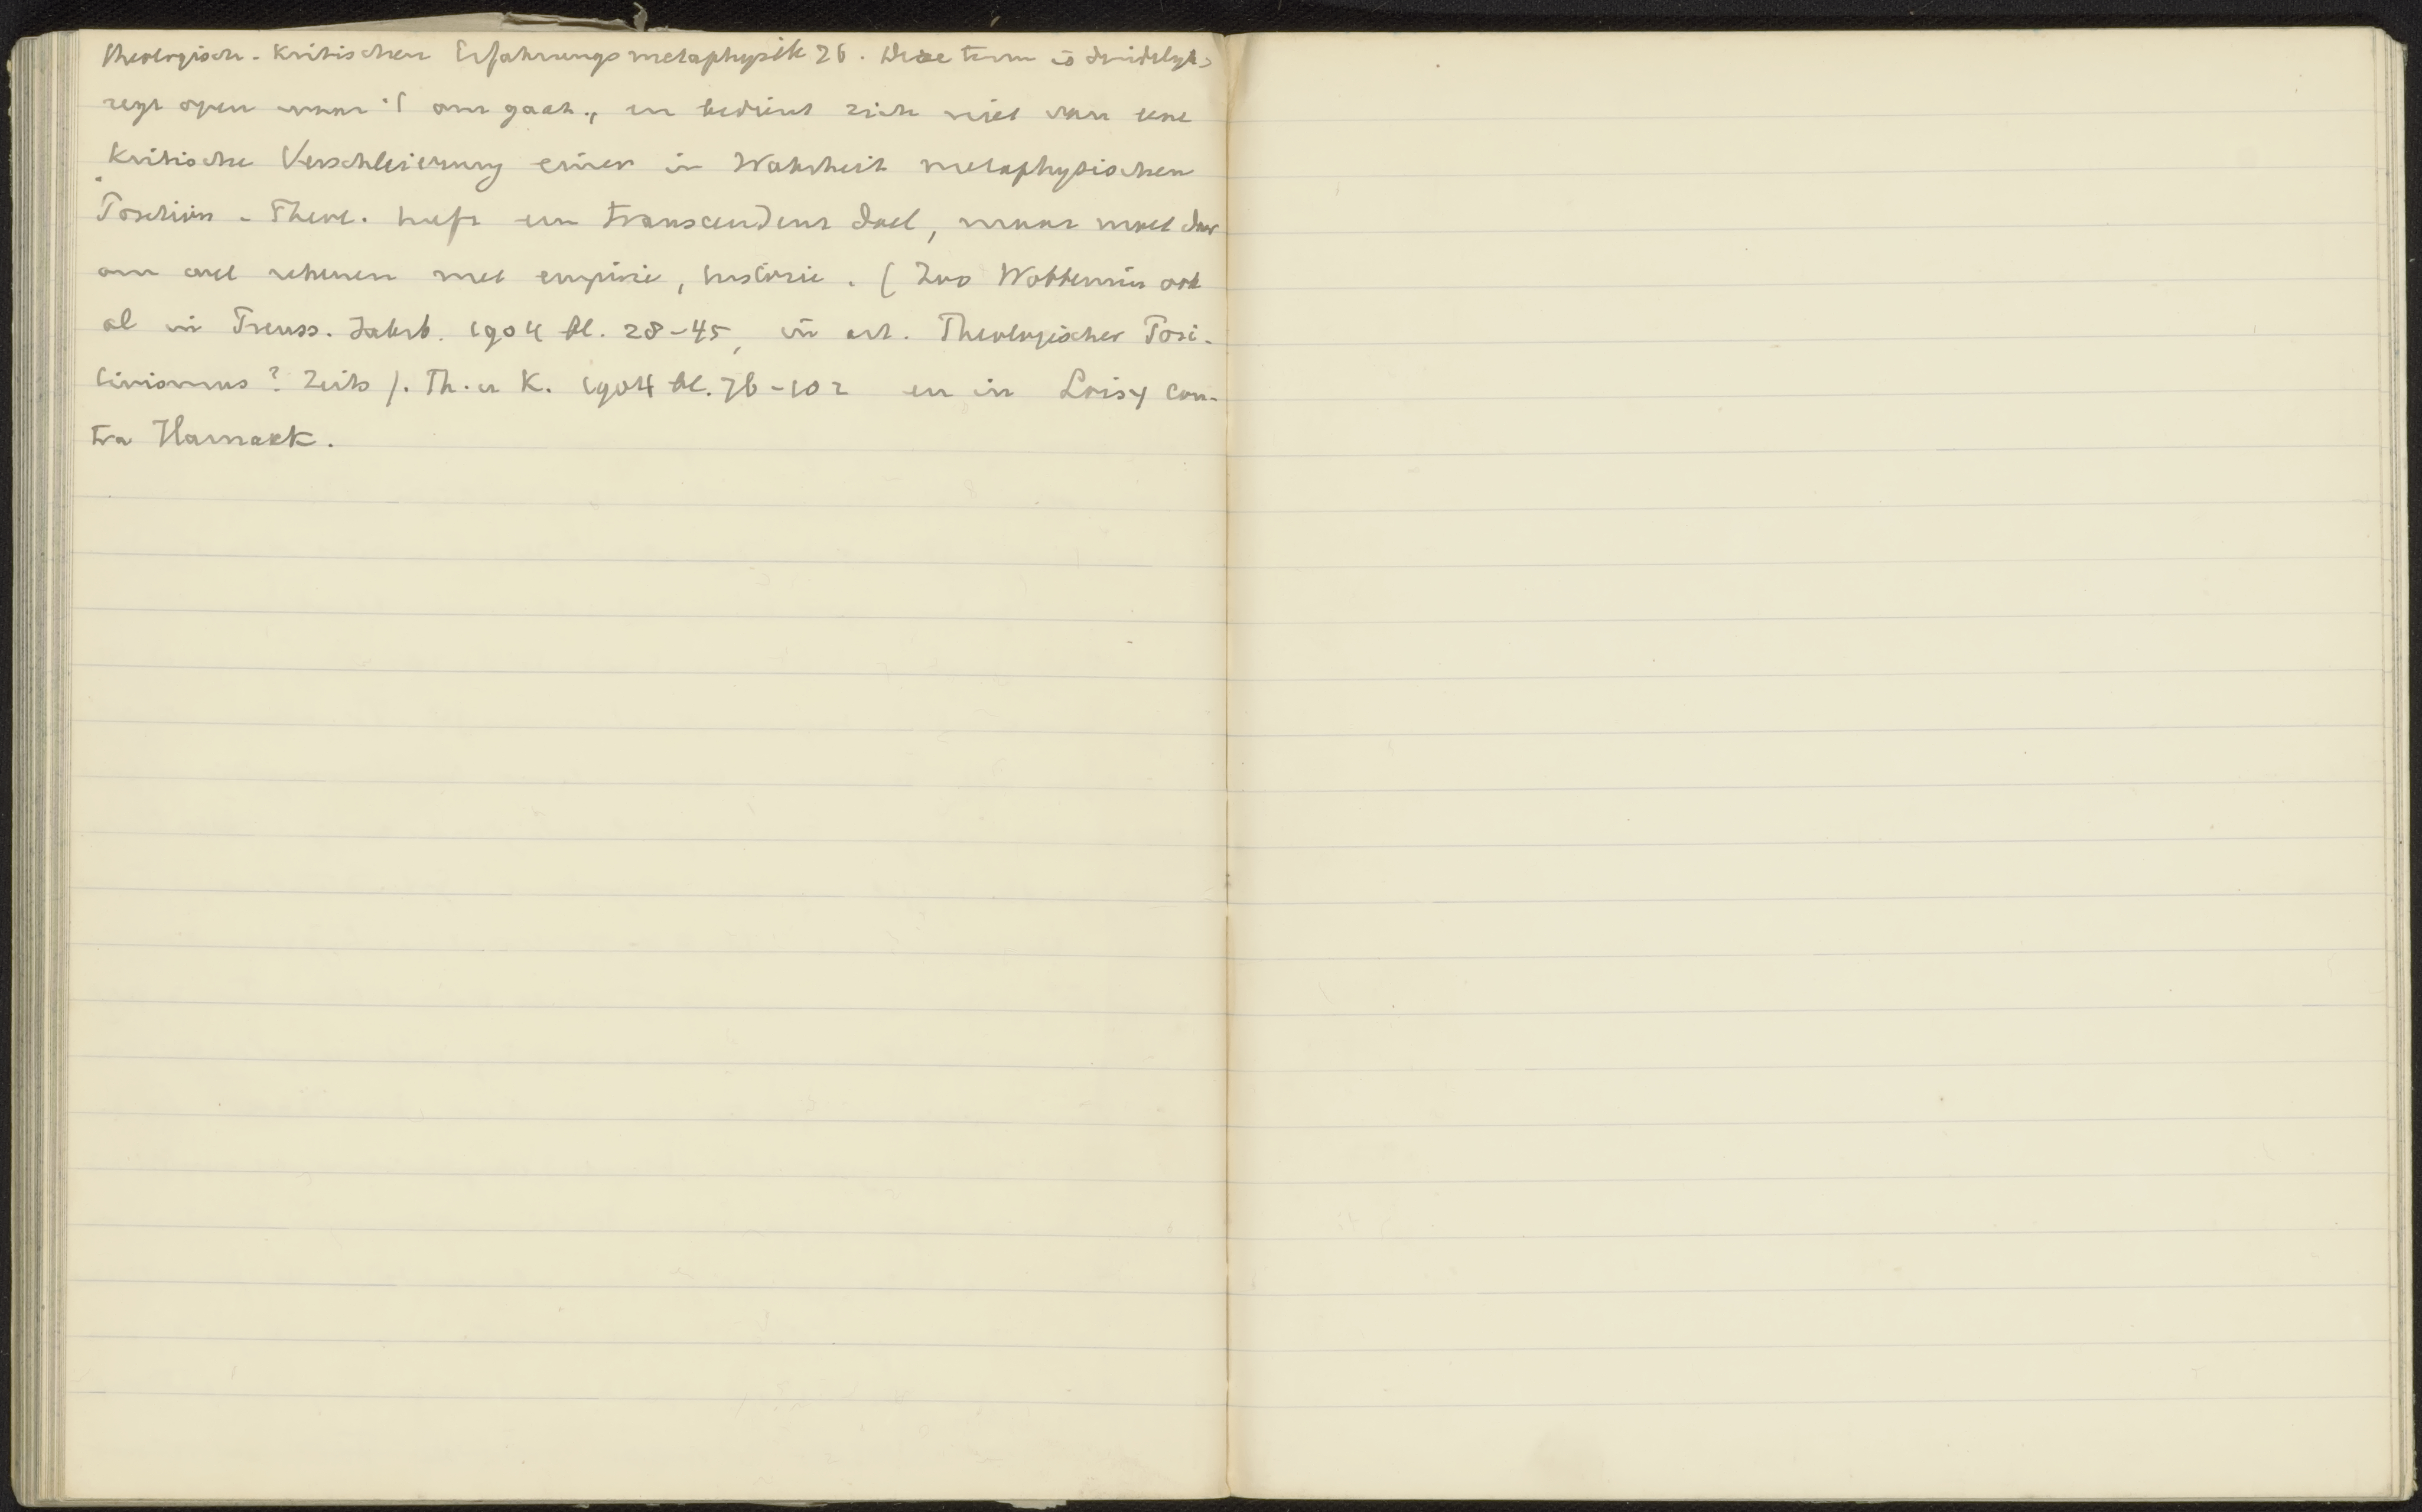 theologisch-kritischen Erfahrungsmetaphysik 26. Deze term is duidelyk,
zegt open waar 't om gaat., en bedient zich niet van eene
"kritische Verschleierung einer in Wahrheit metaphysischen
Position. Theol. heeft een transcendent doel, maar moet daar
om wel rekenen met empirie, historie. (Zoo Wobbermin ook
al in Preuss. Jahrb. 1904 bl. 28-45, in art. Theologischer Posi-
tivismus? Zeits f. Th. u K. 1904 bl. 76-102 en in Loisy con-
tra Harnack.